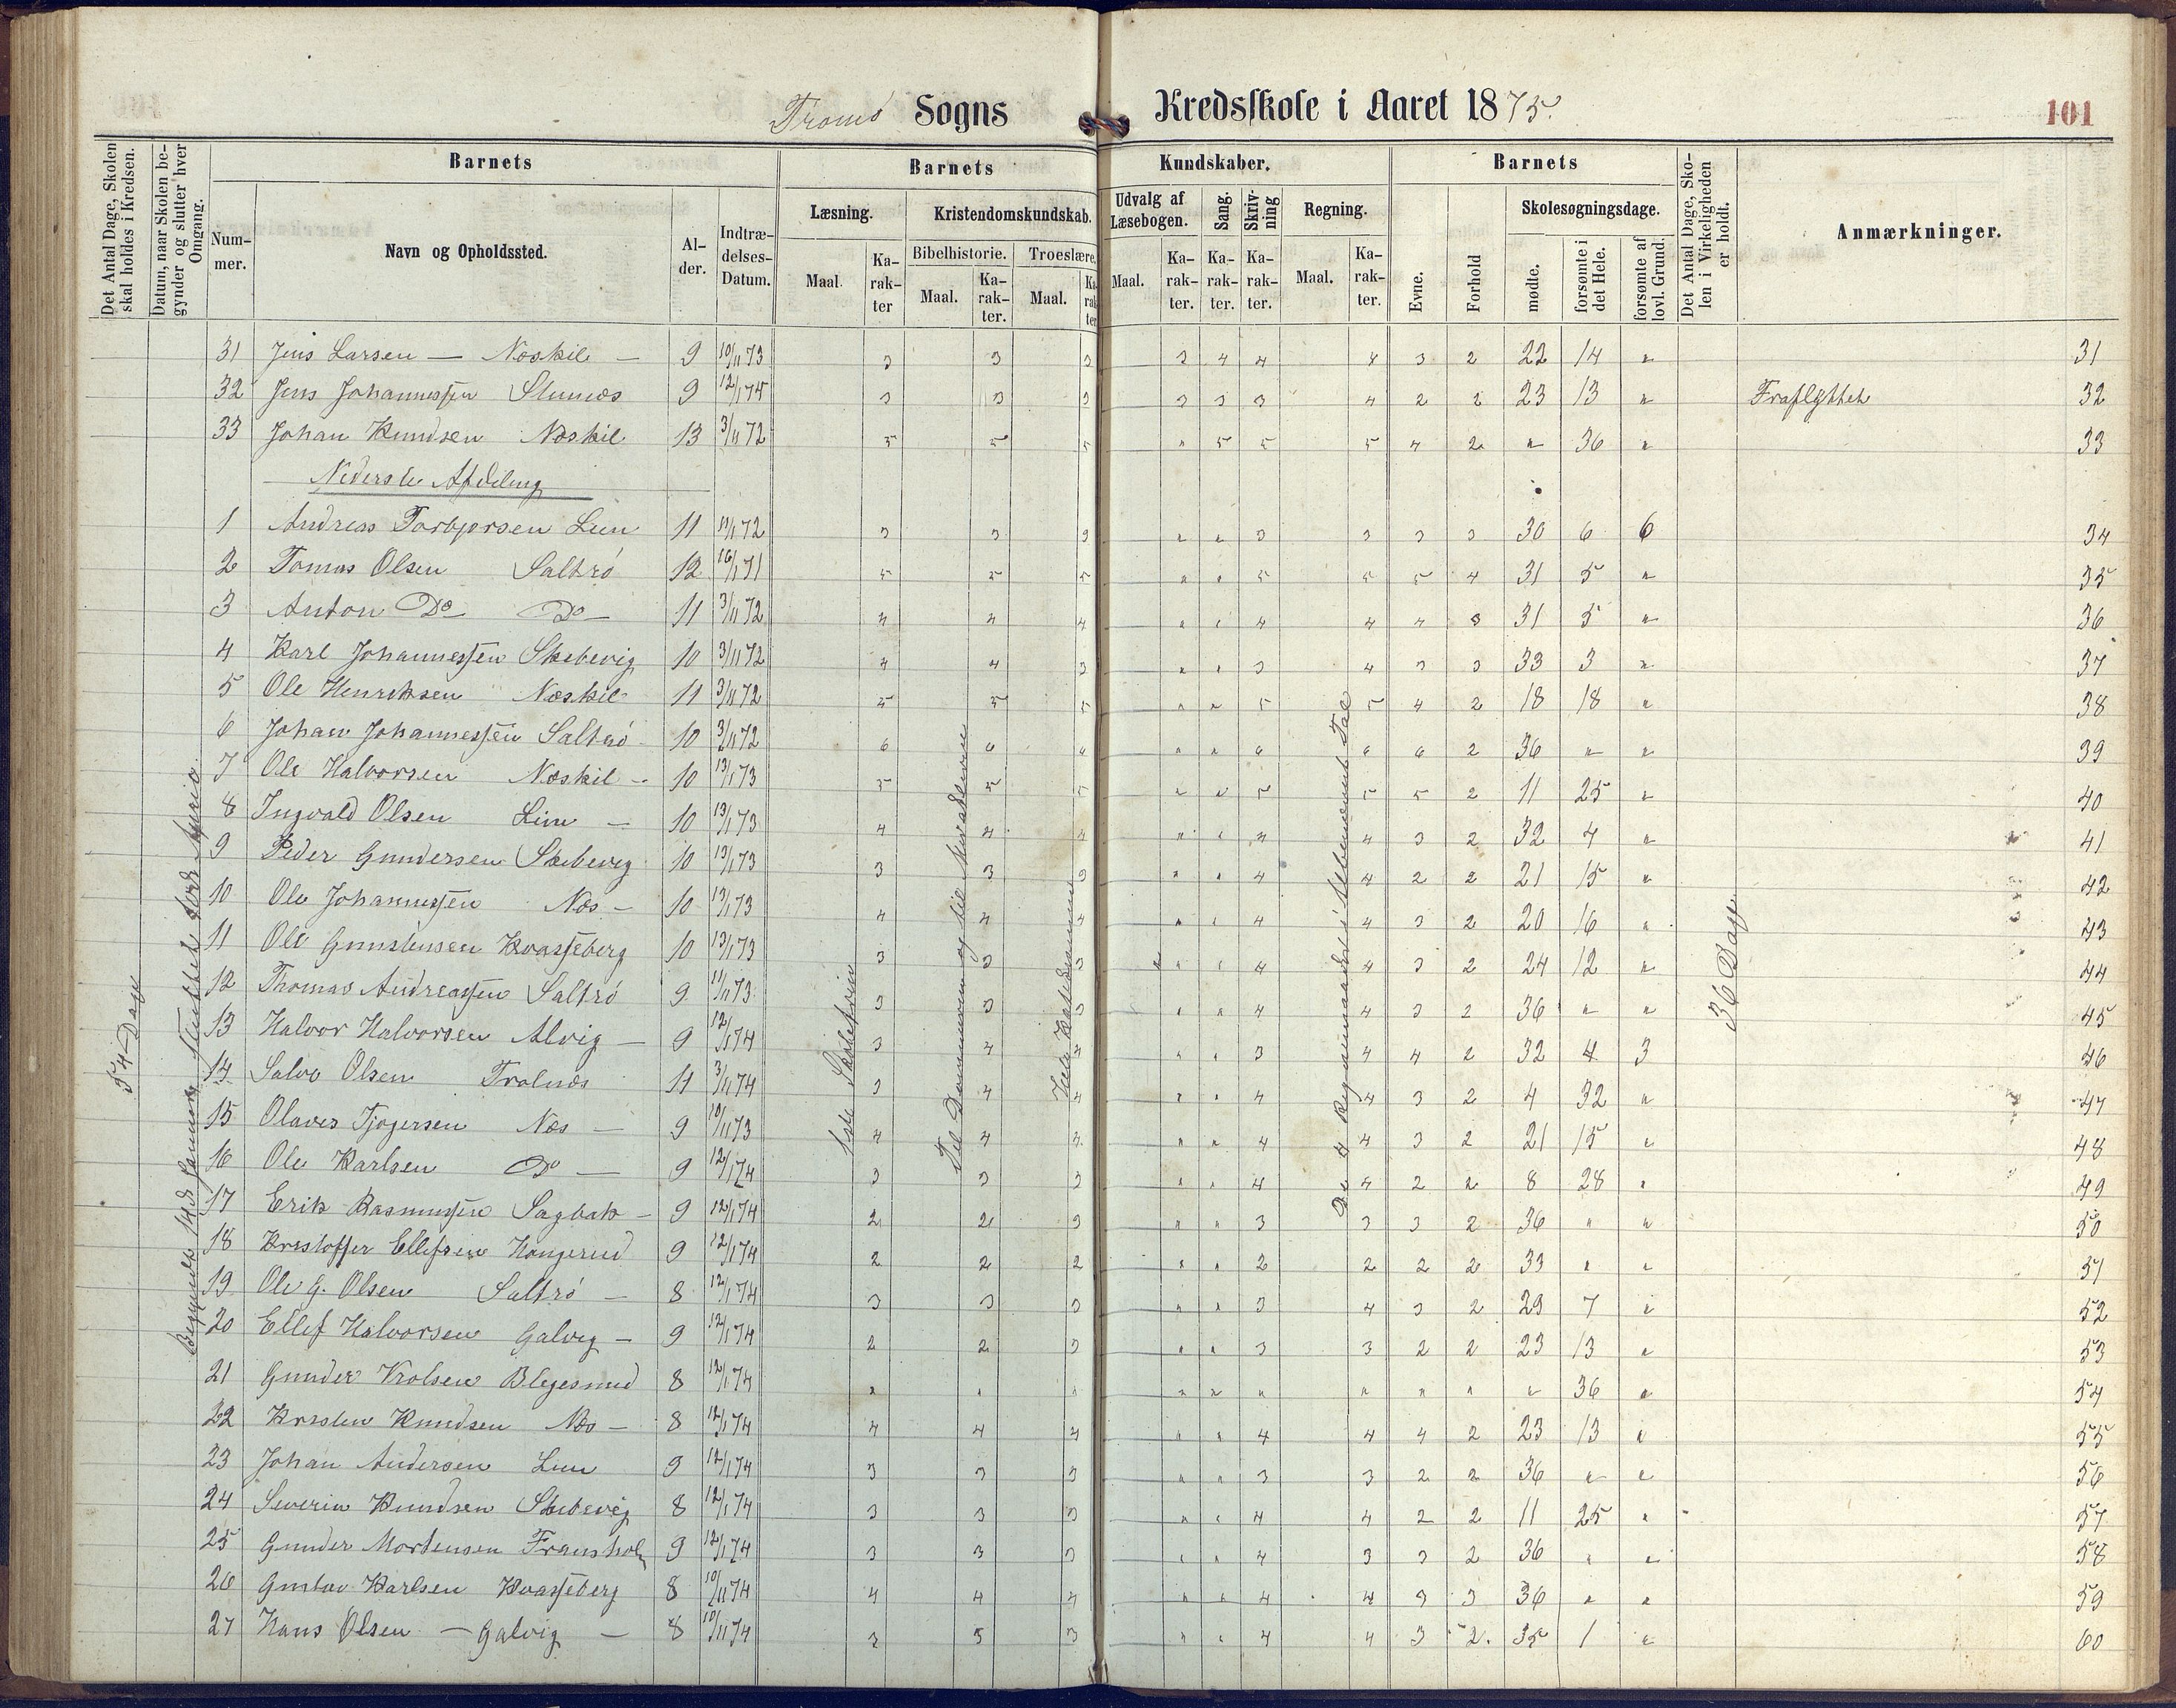 Tromö Sogns Kredsskole i Aaret 1875.
101
Det Antal Dage, Skolen skal holdes i Kredsen.
Datum, naar Skolen begynder og slutter hver Omgang.
Barnets
Nummer.
Navn og Opholdssted.
Alder.
Indtrædelses-Datum.
Barnets Kundskaber.
Læsning.
Maal.
Karakter
Kristendomskundskab.
Bibelhistorie.
Maal.
Karakter.
Troeslære.
Maal.
Karakter
Udvalg af Læsebogen.
Maal.
Karakter.
Sang.
Karakter.
Skrivning
Karakter.
Regning.
Maal.
Karakter.
Barnets
Evne.
Forhold
Skolesøgningsdage.
mødte.
forsømte i det Hele.
forsømte af lovl. Grund.
Det Antal Dage, Skolen i Virkeligheden er holdt.
Anmærkninger.
31 Jens Larsen — Næskil — 9 10/11 73 3 3 3 3 4 4 4 3 2 22 14 " 31
32 Jens Johannessen 9 12/1 74 3 3 3 3 3 3 4 2 2 23 13 " Fraflyttet 32
33 Johan Knudsen Næskil 13 3/11 72 5 5 5 " 5 5 5 4 2 " 36 " 33
Nederste Afdeling
1 Andreas Torbjorsen Lun 11 13/1 72 3 3 3 " " 3 3 3 3 30 6 6 34
2 Tomas Olsen Saltrö 12 16/1 71 5 5 5 " " 5 5 5 4 31 5 " 35
3 Anton Do Do 11 3/11 72 4 4 4 " " 4 4 4 3 31 5 " 36
4 Karl Johannessen Skebevig 10 3/11 72 4 4 3 " " 3 4 3 3 33 3 " 37
5 Ole Henriksen Næskil 11 3/11 72 5 5 5 " " 5 5 4 2 18 18 " 38
6 Johan Johannessen Saltrö 10 3/11 72 6 6 6 " " 6 6 6 2 36 " " 39
7 Ole Halvorsen Næskil 10 13/1 73 5 5 5 " " 5 5 5 2 11 25 " 40
8 Ingvald Olsen Lun — 10 13/1 73 4 4 4 " " 4 4 3 2 32 4 " 41
9 Peder Gundersen Skebevig 10 13/1 73 3 3 3 " " 4 4 2 2 21 15 " 42
10 Ole Johannessen Næs — 10 13/1 73 4 4 4 " " 4 4 3 2 20 16 " 43
11 Ole Gunstensen Kvasseberg 10 13/1 73 3 3 3 " " 4 4 3 2 24 12 " 44
12 Thomas Andreassen Saltrö 9 11/11 73 3 3 3 " " 4 4 3 2 36 " " 45
13 Halvor Halvorsen Alvig — 9 12/1 74 3 4 4 " " 3 4 4 2 32 4 3 46
14 Salve Olsen Trolnæs 11 3/11 74 3 4 4 " " 4 4 3 2 4 32 " 47
15 Olaves Tjogersen Næs — 9 10/11 73 4 4 4 " " 4 4 3 2 21 15 " 48
16 Ole Karlsen Do — 9 12/1 74 3 3 3 " " 4 4 2 2 8 28 " 49
17 Erik Rasmussen Sagbak — 9 12/1 74 2 2 3 " " 3 3 3 2 36 " " 50
18 Kristoffer Ellefsen 9 12/1 74 2 2 2 " " 2 2 2 2 33 " " 51
19 Ole G. Olsen Saltrö — 8 12/1 74 3 3 3 " " 3 4 3 2 29 7 " 52
20 Ellef Halvorsen Galvig — 9 12/1 74 2 2 3 " " 3 3 2 2 23 13 " 53
21 Gunder 8 12/1 74 " " " " " " " " " " 36 " 54
22 Kristen Knudsen Næs — 8 12/1 74 4 4 4 " " 4 4 4 2 23 13 " 55
23 Johan Andersen Lun 9 12/1 74 3 3 3 " " 3 3 2 2 36 " " 56
24 Severin Knudsen Skebevig 8 12/1 74 3 3 3 " " 4 4 2 2 11 25 " 57
25 Gunder Mortensen 9 12/1 74 3 3 3 " " 4 3 3 2 36 " " 58
26 Gustav Karlsen Kvasseberg 8 10/11 74 4 4 4 " " 4 4 3 3 36 " " 59
27 Hans Olsen — Galvig — 8 10/11 74 3 3 3 " " 4 4 3 2 35 1 " 60
54 Dage
36 Dage